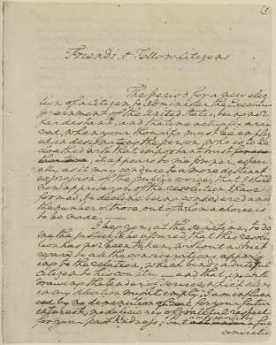 Friends, & Fellow-Citizens
The period for a new elec-
tion of a Citizen to administer the Executive
government of the United States, being not
far distant, and the time actually arri-
ved, when your thoughts must be employ-
ed in designating the person, who is to be
cloathed with that important trust
it appears to me proper, espe-
cially as it may conduce to a more distinct
expression of the public voice, that I should
now apprise you of the resolution I have
formed, to decline being considered among
the number of those, out of whom a choice is
to be made.
I beg you, at the same time, to do
me the justice to be assured, that this resolu-
tion has not been taken, without a strict
regard to all the considerations apper-
taining to the relation, which binds a dutiful
citizen to his country and that, in with
drawing the tender of service which silence
in my situation might imply, I am influen-
ced by no diminution of zeal for your future
interest, no deficiency of grateful respect
for your past kindness; but